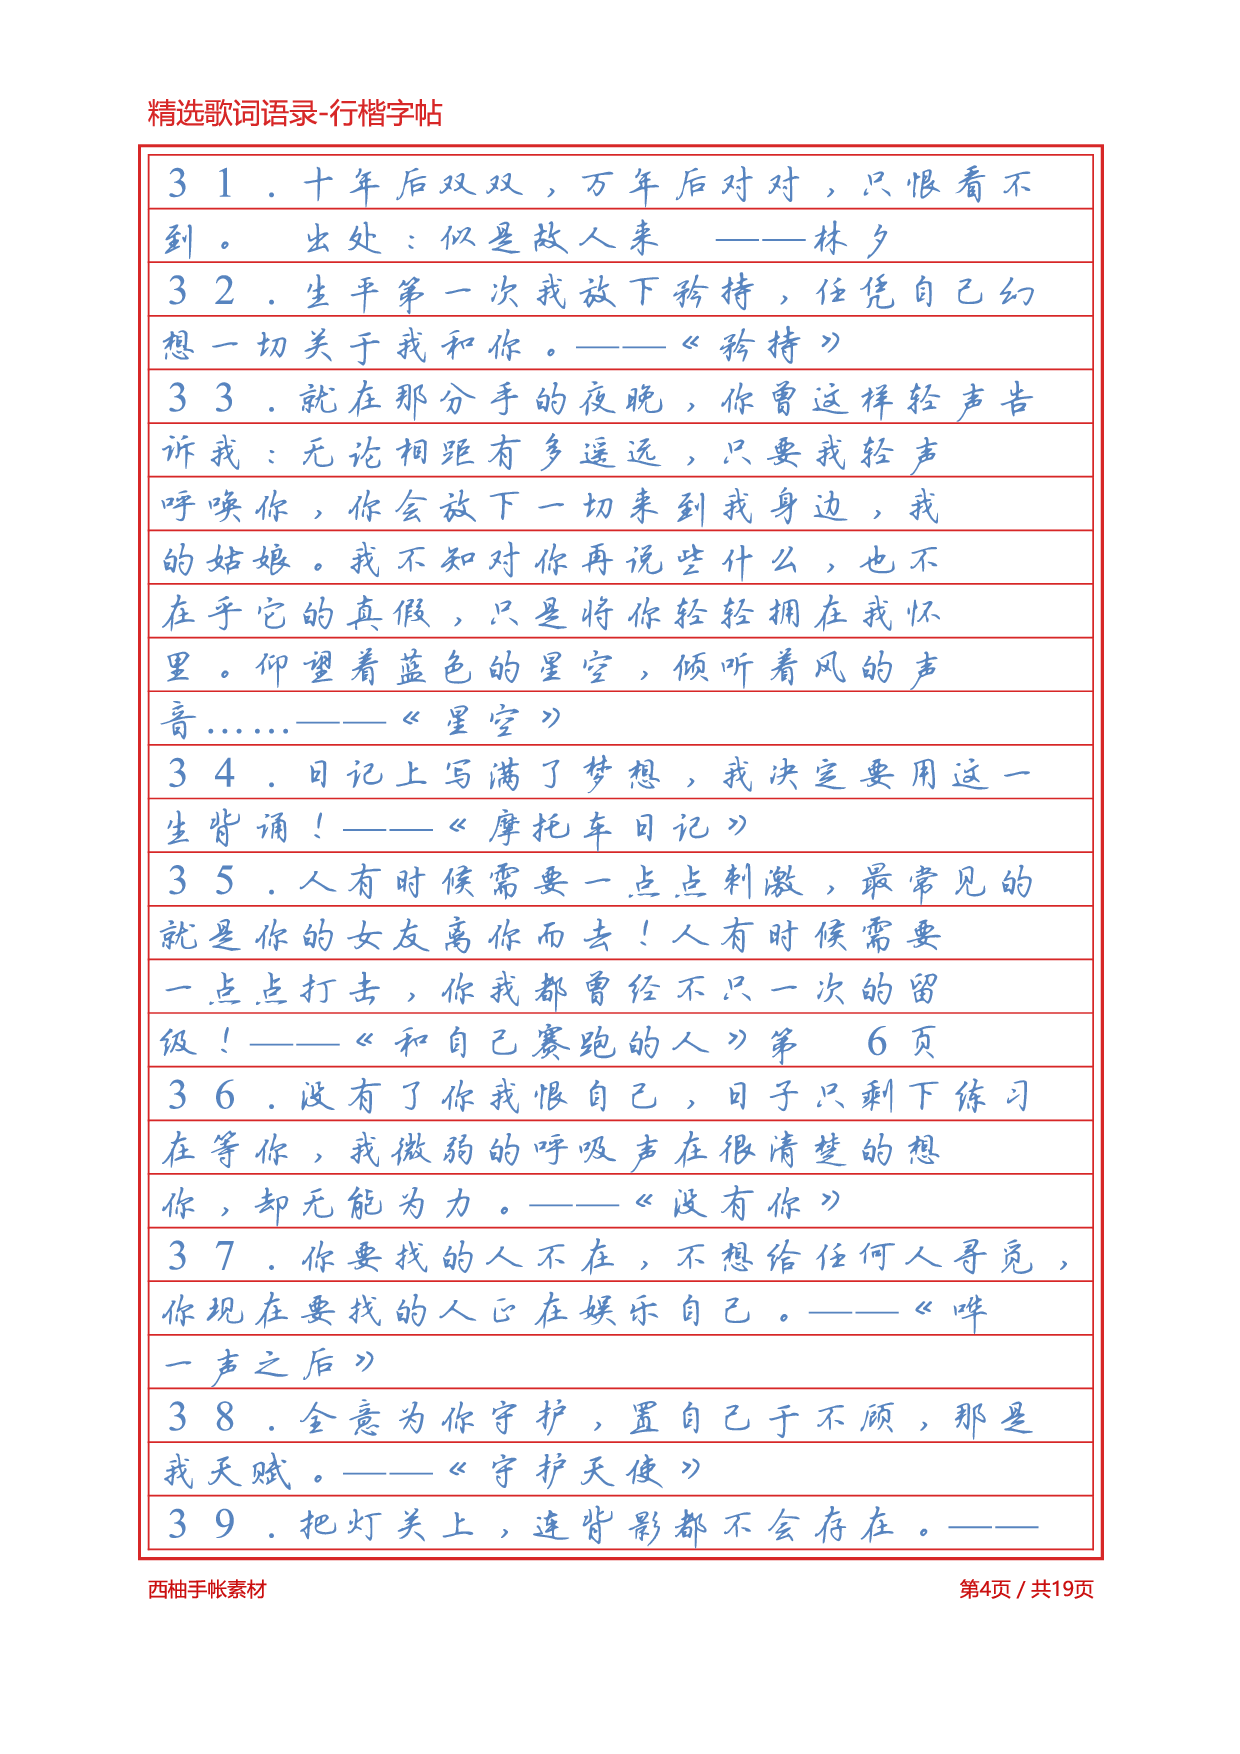 精选歌词语录-行楷字帖
31.十年后双双，万年后对对，只恨看不
到。 出处：似是故人来 ——林夕
32.生平第一次我放下矜持，任凭自己幻
想一切关于我和你。——《矜持》
33.就在那分手的夜晚，你曾这样轻声告
诉我：无论相距有多遥远，只要我轻声
呼唤你，你会放下一切来到我身边，我
的姑娘。我不知对你再说些什么，也不
在乎它的真假，只是将你轻轻拥在我怀
里。仰望着蓝色的星空，倾听着风的声
音……——《星空》
34.日记上写满了梦想，我决定要用这一
生背诵！——《摩托车日记》
35.人有时候需要一点点刺激，最常见的
就是你的女友离你而去！人有时候需要
一点点打击，你我都曾经不只一次的留
级！——《和自己赛跑的人》第 6页
36.没有了你我恨自己，日子只剩下练习
在等你，我微弱的呼吸声在很清楚的想
你，却无能为力。——《没有你》
37.你要找的人不在，不想给任何人寻觅，
你现在要找的人正在娱乐自己。——《哗
一声之后》
38.全意为你守护，置自己于不顾，那是
我天赋。——《守护天使》
39.把灯关上，连背影都不会存在。——
西柚手帐素材
第4页 / 共19页